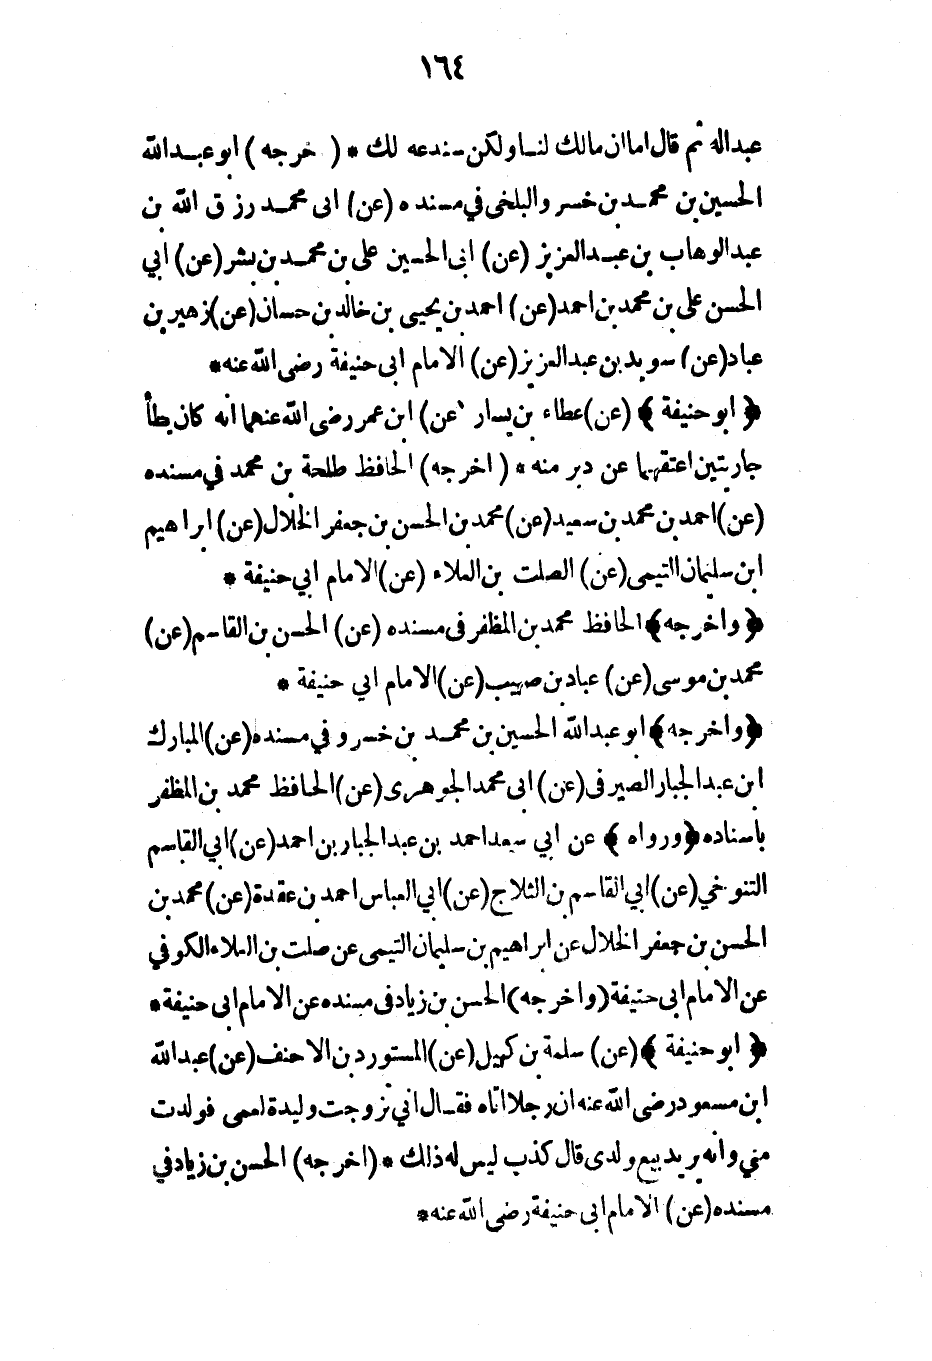 ١٦٤
عبداله ثم قال اما ان مالك لنا ولكن سندعه لك * ( خرجه ) ابو عبد الله
الحسين بن محمد بن خسر والبلخى فى مسنده (عن) ابى محمد رزق الله بن
عبدالوهاب بن عبد العزيز (عن) ابى الحسين على بن محمد بن بشر (عن) أبي
الحسن على بن محمد بن احمد (عن) احمد بن يحيى بن خالد بن حسان (عن) زهير بن
عباد (عن) سويد بن عبد العزيز (عن) الامام ابى حنيفة رضى الله عنه *
﴿ ابو حنيفة ﴾ (عن) عطاء بن يسار (عن) ابن عمر رضى الله عنهما انه كان يطأ
جاريتين اعتقهما عن دبر منه * ( اخرجه ) الحافظ طلحة بن محمد في مسنده
(عن) احمد بن محمد بن سعيد (عن) محمد بن الحسن بن جعفر الخلال (عن) ابراهيم
ابن سليمان التيمى (عن) الصلت بن العلاء (عن) الامام ابي حنيفة *
﴿ واخرجه ﴾ الحافظ محمد بن المظفر فى مسنده (عن) الحسن بن القاسم (عن)
محمد بن موسى (عن) عباد بن صهيب (عن) الامام ابي حنيفة *
﴿ واخرجه ﴾ ابو عبدالله الحسين بن محمد بن خسرو في مسنده (عن) المبارك
ابن عبد الجبار الصيرفى (عن) ابى محمد الجوهرى (عن) الحافظ محمد بن المظفر
باسناده ﴿ ورواه ﴾ عن ابي سعد احمد بن عبد الجبار بن احمد (عن) ابي القاسم
التنوخي (عن) ابي القاسم بن الثلاج (عن) ابي العباس احمد بن عقدة (عن) محمد بن
الحسن بن جعفر الخلال عن ابراهيم بن سليمان التيمى عن صلت بن العلاء الكوفي
عن الامام ابى حنيفة (واخرجه) الحسن بن زياد فى مسنده عن الامام ابى حنيفة *
﴿ ابو حنيفة ﴾ (عن) سلمة بن كهيل (عن) المستورد بن الاحنف (عن) عبد الله
ابن مسعود رضى الله عنه ان رجلا اتاه فقال انى تزوجت وليدة لعمى فولدت
مني وانه يريد بيع ولدى قال كذب ليس له ذلك * (اخرجه) الحسن بن زياد في
مسنده (عن) الامام ابى حنيفة رضى الله عنه *